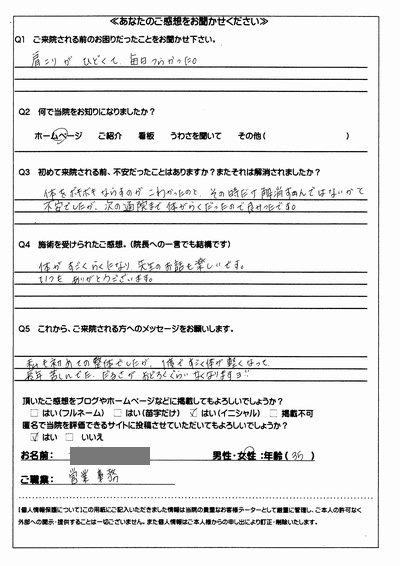 ≪あなたのご感想をお聞かせください≫
Q1 ご来院される前のお困りだったことをお聞かせ下さい。
肩こりが ひどくて、毎日つらかった。
Q2 何で当院をお知りになりましたか？
ホームページ ご紹介 看板 うわさを聞いて その他( )
Q3 初めて来院される前、不安だったことはありますか？またそれは解消されましたか？
体をボキボキならすのが こわかったのと、その時だけ解消するんではないかて
不安でしたが、次の通院まで体がらくだったので良かったです。
Q4 施術を受けられたご感想。(院長への一言でも結構です)
体が すごくらくになり 先生のお話も楽しいです。
いつも ありがとうございます。
Q5 これから、ご来院される方へのメッセージをお願いします。
私も初めての整体でしたが、1度ですごく体が軽くなって
長年 苦しんでた だるさが おどろくぐらい なくなりますヨ!!
頂いたご感想をブログやホームページなどに掲載してもよろしいでしょうか？
□はい(フルネーム) □はい(苗字だけ) ☑はい(イニシャル) □掲載不可
匿名で当院を評価できるサイトに投稿させていただいてもよろしいでしょうか？
☑はい □いいえ
お名前: 男性・女性:年齢(35)
ご職業: 営業事務
【個人情報保護について】この用紙にご記入いただきました情報は当院の貴重なお客様データーとして厳重に管理し、ご本人の許可なく
外部への開示・提供することは一切ございません。また個人情報はご本人様からの申し出により訂正・削除いたします。